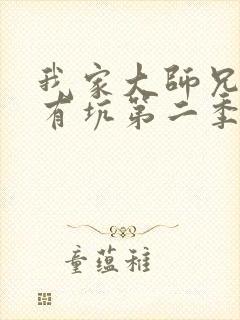 我家大師兄
有坑第二季
童蘊稚